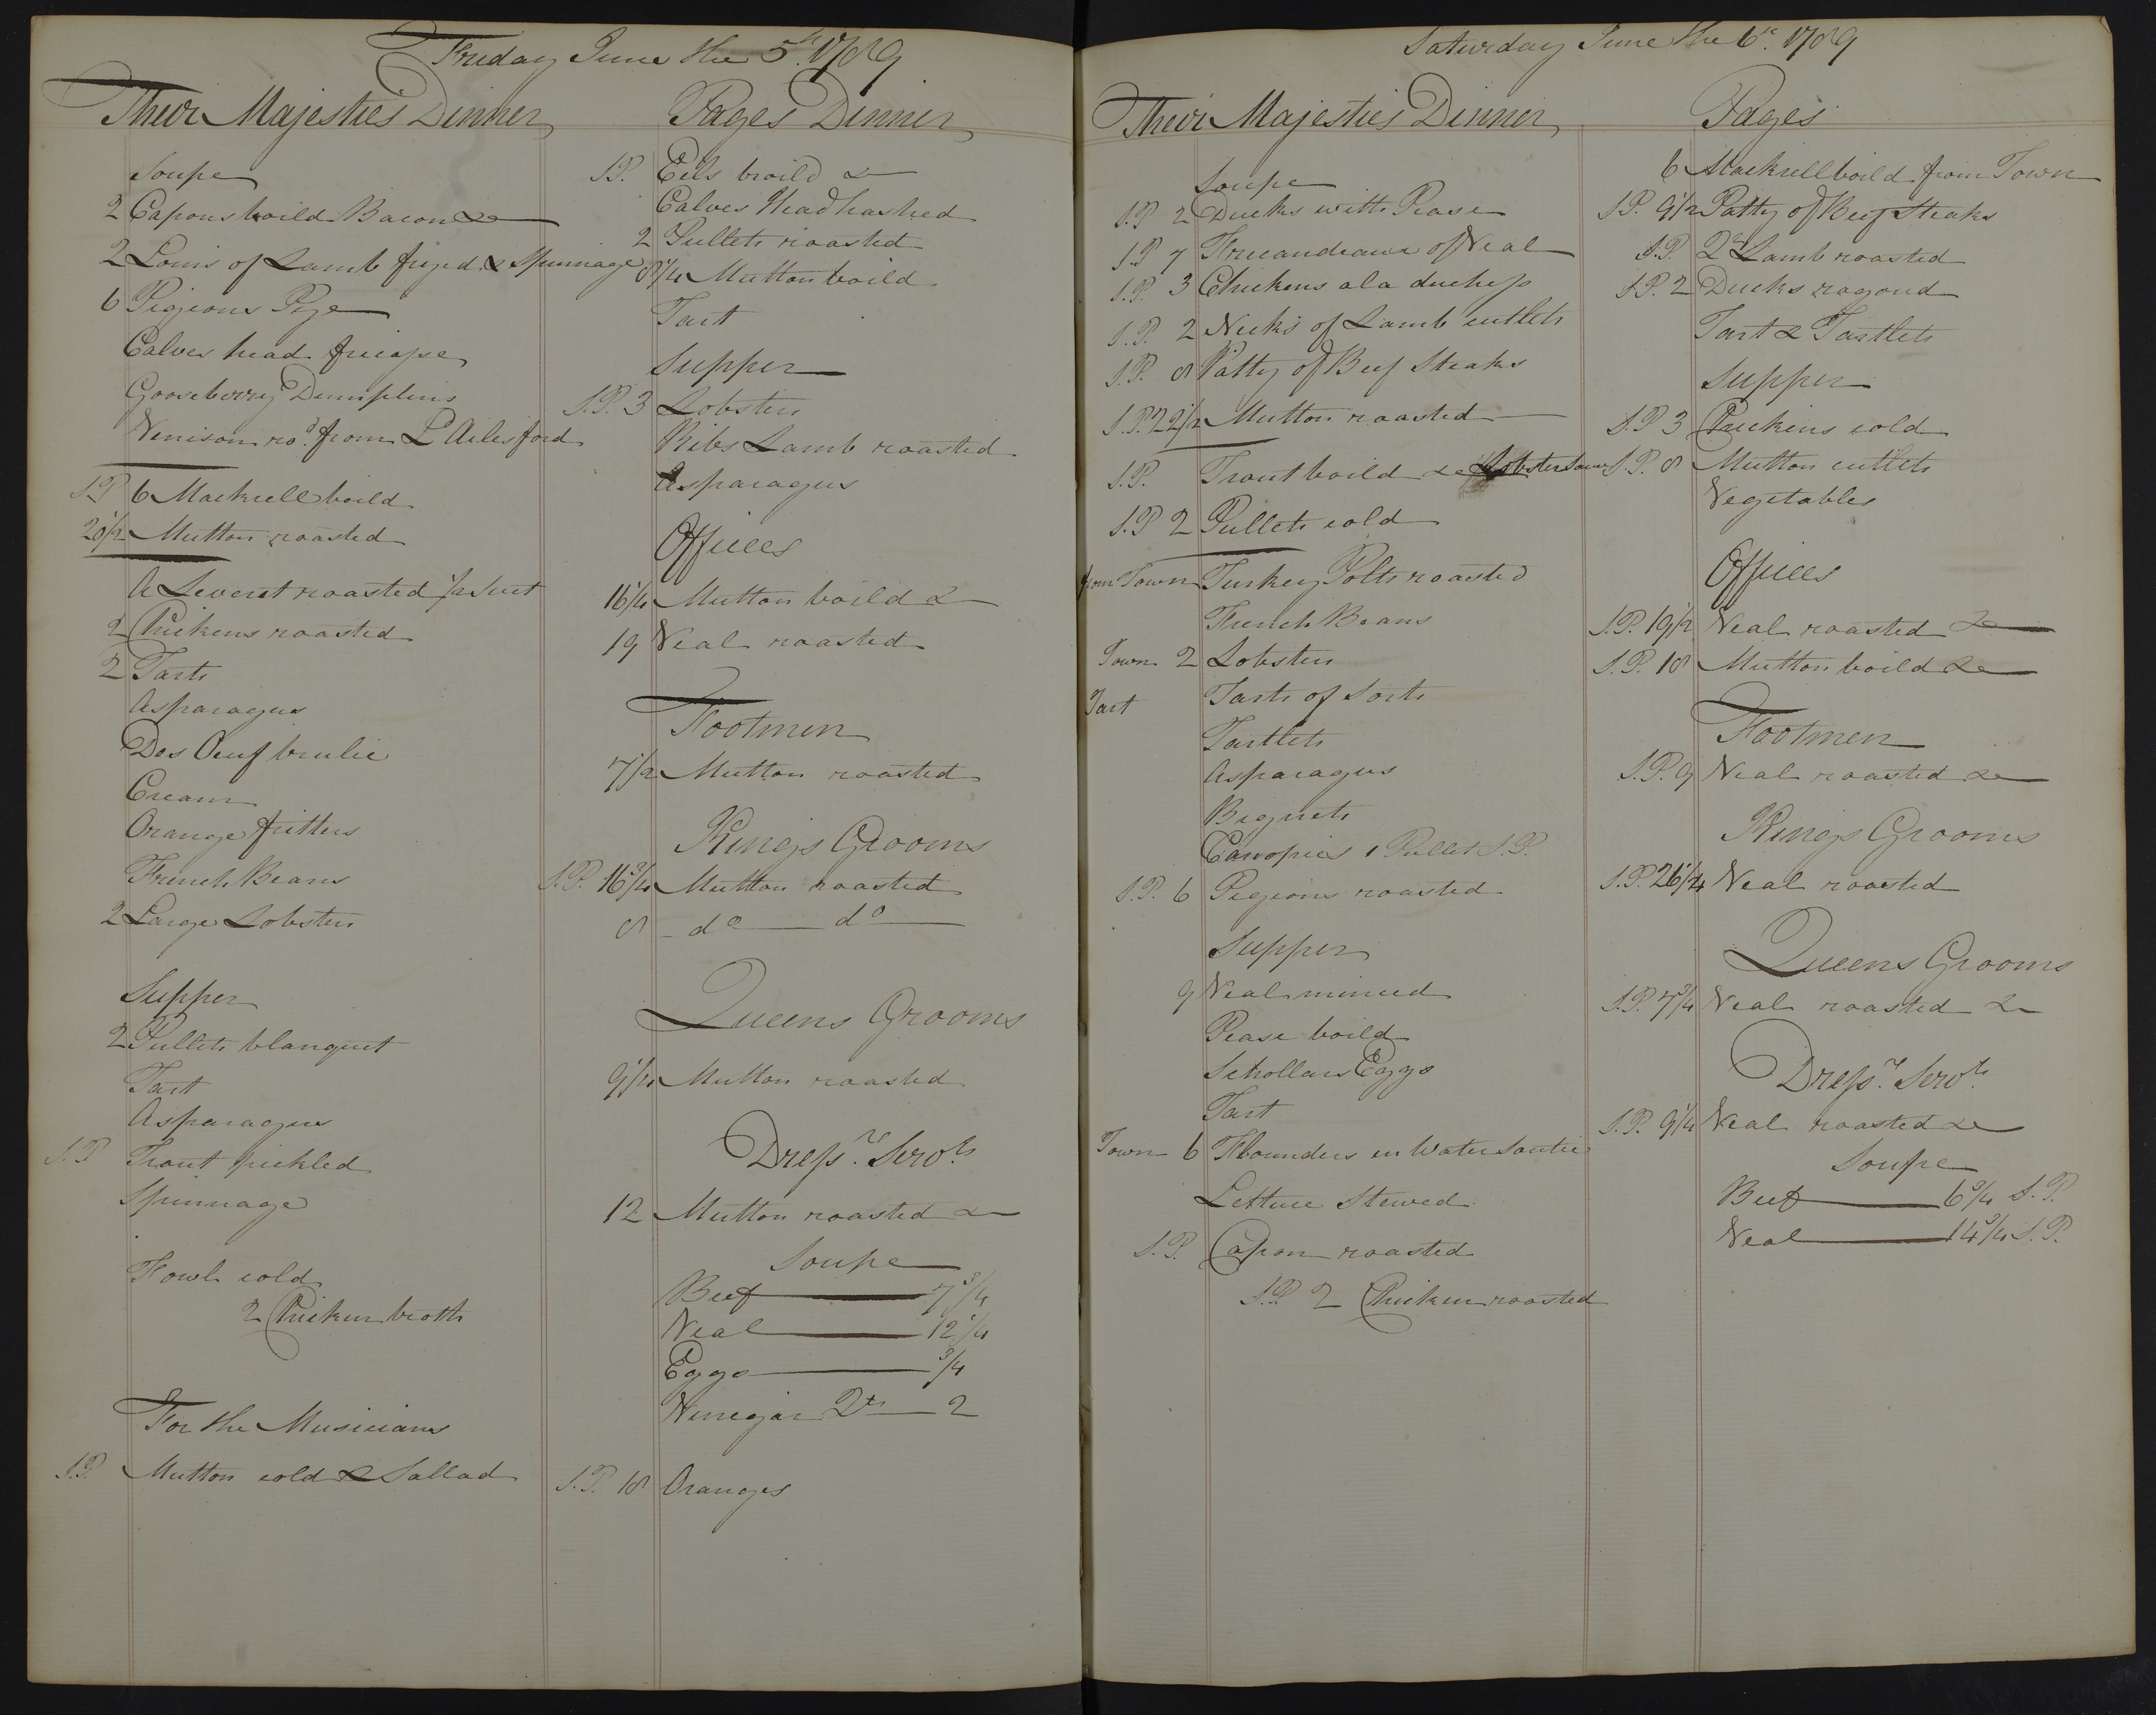 Friday June the 5th 1789
Their Majesties Dinner
Soupe
2 Capons boild Bacon &c
2 Loins of Lamb fryed & Spinnage
6 Pigeons Pye
Calves head fricasse
Gooseberry Dumplins
Venison rod from Ld Ailesford
S.P 6 Mackrell boild
20 1/2 Mutton roasted
A Leveret roasted 1/2 Suet
2 Chickens roasted
2 Tarts
Asparagus
Des Oeuf brulie
Cream
Orange fritters
French Beans
2 Large Lobsters
Supper
2 Pullets blanquet
Tart
Asparagus
S.P Trout pickled
Spinnage
Fowl cold
2 Chicken broth
For the Musicians
S.P. Mutton cold & Sallad
Pages Dinner
S.P. Eels broild &
Calves Head hashed
2 Pullets roasted
8 1/4 Mutton boild
Tart
Supper
S.P. 3 Lobsters
Ribs Lamb roasted
Asparagus
Offices
16 1/4 Mutton boild &
19 Veal roasted
Footmen
7 1/2 Mutton roasted
Kings Grooms
S.P. 16 3/4 Mutton roasted
8 do do
Queens Grooms
9 1/4 Mutton roasted
Dressr. Servts
12 Mutton roasted &
Soupe
Beef 7 3/4
Veal 12 1/4
Eggs 3/4
Vinegar Qts 2
S.P. 18 Oranges
Saturday June the 6th 1789
Their Majesties Dinner
Soupe
S.P 2 Ducks with Pease
S.P 7 Fricandeaux of Veal
S.P. 3 Chickens ala duchess
S.P. 2 Necks of Lamb cutlets
S.P. 8 Patty of Beef Steaks
S.P. 22 1/2 Mutton roasted
S.P. Trout boild & Lobster Sauce
S.P 2 Pullets cold
from Town Turkey Polts roasted
French Beans
Town 2 Lobsters
Tart Tarts of Sorts
Tartlets
Asparagus
Bignets
Canopies 1 Pullet S.P.
S.P. 6 Pegeons roasted
Supper
9 Veal minced
Pease boild
Schollars Eggs
Tart
Town 6 Flounders en Water Soutie
Lettuce Stewed
S.P. Capon roasted
S.P. 2 Chicken roasted
Pages
6 Mackrell boild from Town
S.P. 9 1/2 Patty of Beef Steaks
S.P. Qr Lamb roasted
S.P. 2 Ducks ragoud
Tart & Tartlets
Supper
S.P 3 Chickens cold
S.P. 8 Mutton cutlets
Vegetables
Offices
S.P. 19 1/2 Veal roasted &c
S.P. 18 Mutton boild &c
Footmen
S.P. 9 Veal roasted &c
Kings Grooms
S.P. 26 1/4 Veal roasted
Queens Grooms
S.P. 7 3/4 Veal roasted &
Dressr. Servts
S.P. 9 1/4 Veal roasted &c
Soupe
Beef 6 3/4 S.P.
Veal 14 3/4 S.P.